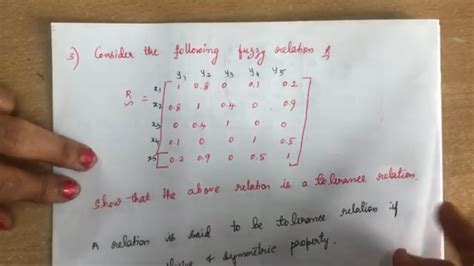 3) Consider the following fuzzy relation R
y1 y2 y3 y4 y5
x1 1 0.8 0 0.1 0.2
R = x2 0.8 1 0.4 0 0.9
x3 0 0.4 1 0 0
x4 0.1 0 0 1 0.5
x5 0.2 0.9 0 0.5 1
Show that the above relation is a tolerance relation.
A relation is said to be tolerance relation if
& symmetric property.